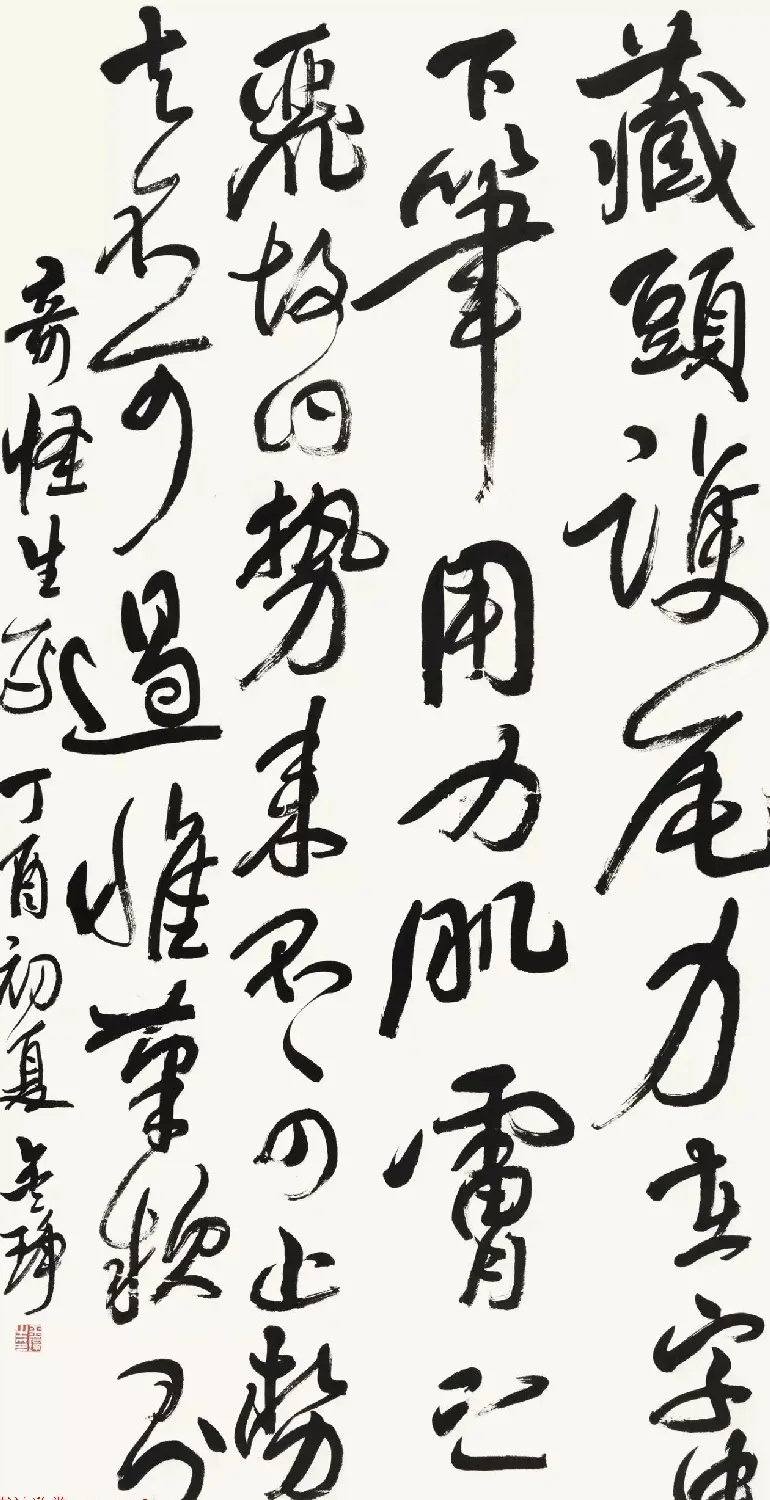 藏頭護尾力在字中
下筆用力肌膚之
麗故曰勢來不可止勢
去不可遏惟筆軟則
奇怪生焉 丁酉初夏